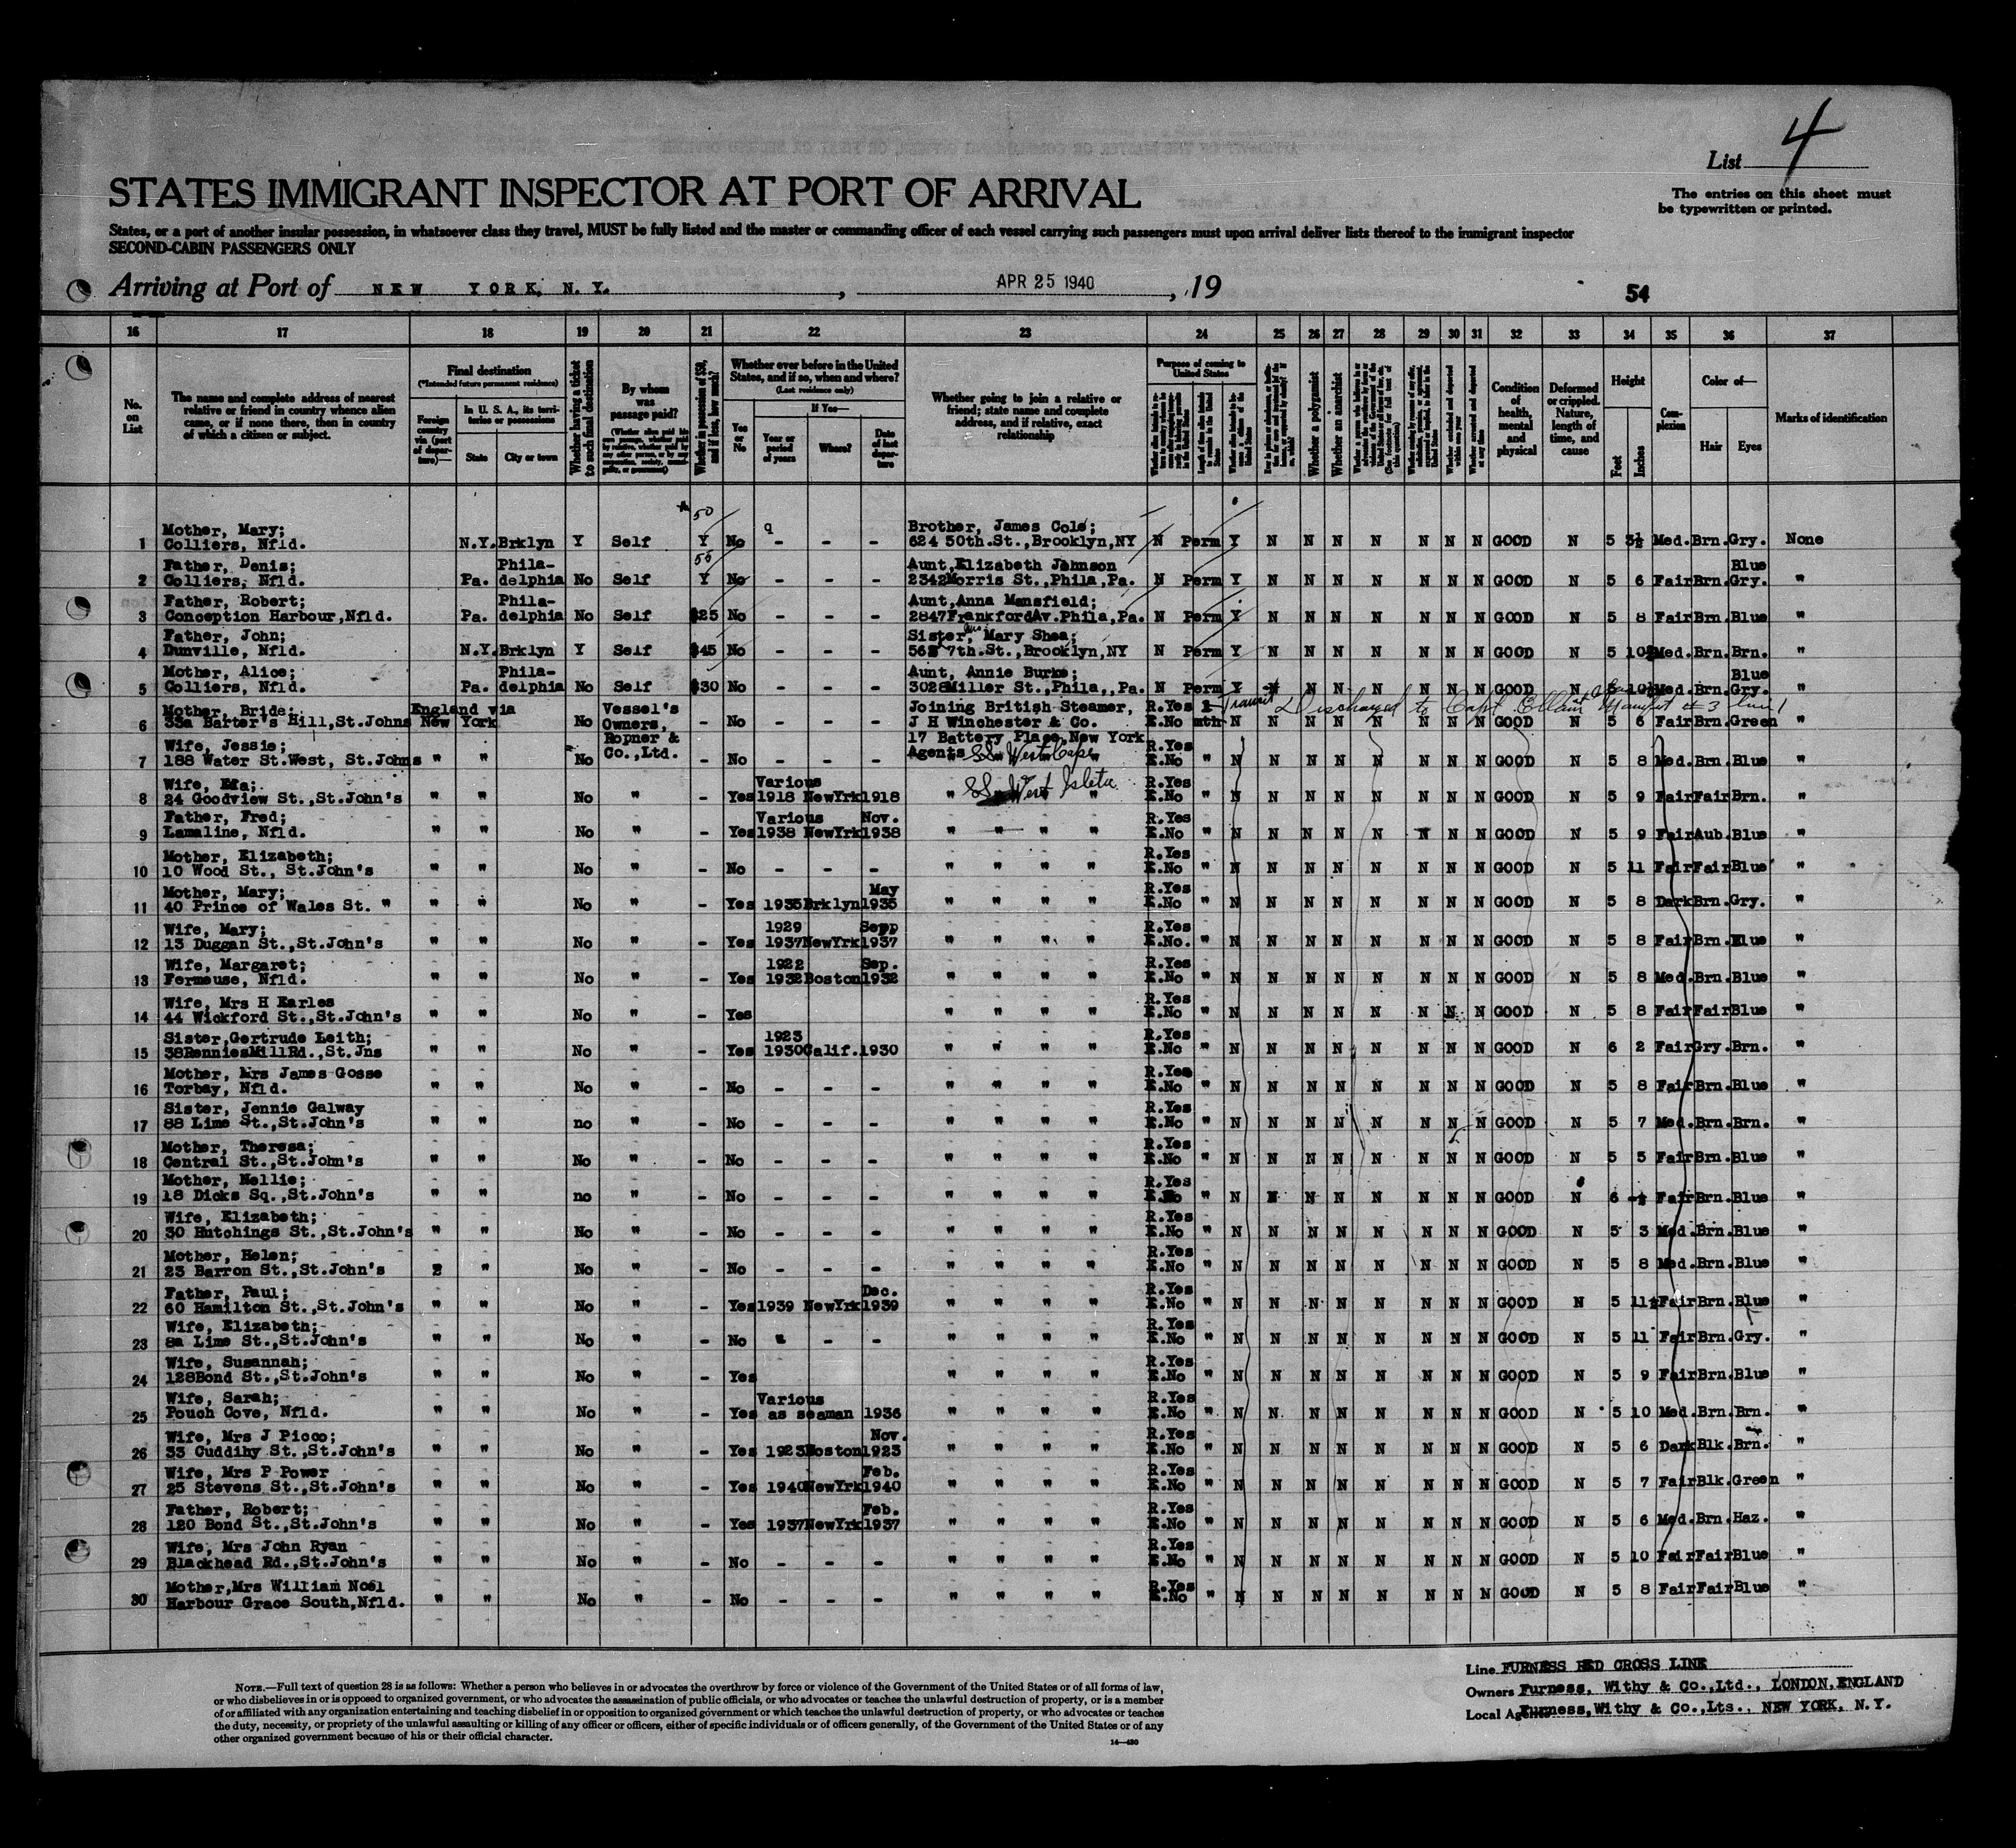 List 4
The entries on this sheet must
be typewritten or printed.
STATES IMMIGRANT INSPECTOR AT PORT OF ARRIVAL
States, or a port of another insular possession, in whatsoever class they travel, MUST be fully listed and the master or commanding officer of each vessel carrying such passengers must upon arrival deliver lists thereof to the immigrant inspector
SECOND-CABIN PASSENGERS ONLY
Arriving at Port of NEW YORK, N.Y. , APR 25 1940 , 19
54
16 17 18 19 20 21 22 23 24 25 26 27 28 29 30 31 32 33 34 35 36 37
No. on List
The name and complete address of nearest relative or friend in country whence alien came, or if none there, then in country of which a citizen or subject.
Final destination
(*Intended future permanent residence)
Foreign country via (port of departure)—
In U. S. A., its territories or possessions
State City or town
Whether having a ticket to such final destination
By whom was passage paid?
Whether in possession of $50, and if less, how much?
Whether ever before in the United States, and if so, when and where?
(Last residence only)
Yes or No
If Yes—
Year or period of years Where? Date of last departure
Whether going to join a relative or friend; state name and complete address, and if relative, exact relationship
Purpose of coming to United States
Whether a polygamist
Whether an anarchist
Condition of health, mental and physical
Deformed or crippled. Nature, length of time, and cause
Height
Feet Inches
Complexion
Color of—
Hair Eyes
Marks of identification
50
Mother, Mary; Brother, James Cole;
1 Colliers, Nfld. N.Y. Brklyn Y Self Y No - - - 624 50th.St.,Brooklyn,NY N Perm Y N N N N N N N GOOD N 5 3½ Med. Brn. Gry. None
Father, Denis; Phila- Aunt,Elizabeth Johnson Blue
2 Colliers, Nfld. Pa. delphia No Self Y No - - - 2342Morris St.,Phila,Pa. N Perm Y N N N N N N N GOOD N 5 6 Fair Brn. Gry. "
Father, Robert; Phila- Aunt,Anna Mansfield;
3 Conception Harbour,Nfld. Pa. delphia No Self $25 No - - - 2847FrankfordAv.Phila,Pa. N Perm Y N N N N N N N GOOD N 5 8 Fair Brn. Blue "
Father, John; Sister, Mary Shea;
4 Dunville, Nfld. N.Y. Brklyn Y Self $45 No - - - 7th.St.,Brooklyn,NY N Perm Y N N N N N N N GOOD N 5 Med. Brn. Brn. "
Mother, Alice; Phila- Aunt, Annie Burke; Blue
5 Colliers, Nfld. Pa. delphia No Self $30 No - - - 3028Miller St.,Phila,,Pa. N Perm Y N N N N N N GOOD N 5 Med. Brn. Gry. "
Transit Discharged to Capt
Mother, Bride; England via Vessel's Joining British Steamer, R.Yes
6 33a Barter's Hill,St.Johns New York No Owners, - No J H Winchester & Co. E.No mth N N N N N N N GOOD N 5 6 Fair Brn. Green "
Wife, Jessie; Ropner & 17 Battery Place,New York R.Yes
7 188 Water St.West, St.Johns " " No Co.,Ltd. - No Agents SS West E.No " N N N N N N N N GOOD N 5 8 Med. Brn. Blue "
Wife, Various SS West Isleta R.Yes
8 24 Goodview St.,St.John's " " No " - Yes 1918 NewYrk 1918 " " E.No " N N N N N N N N GOOD N 5 9 Fair Fair Brn. "
Father, Fred; Various Nov. R.Yes
9 Lamaline, Nfld. " " No " - Yes 1938 NewYrk 1938 " " " " E.No " N N N N N N N N GOOD N 5 9 Fair Aub. Blue "
Mother, Elizabeth; R.Yes
10 10 Wood St., St.John's " " No " - No - - - " " " " E.No " N N N N N N N N GOOD N 5 11 Fair Fair Blue "
Mother, Mary; May R.Yes
11 40 Prince of Wales St. " " " No " - Yes 1935 Brklyn 1935 " " " " E.No " N N N N N N N N GOOD N 5 8 Dark Brn. Gry. "
Wife, Mary; 1929 Sepp R.Yes
12 13 Duggan St.,St.John's " " No " - Yes 1937 NewYrk 1937 " " " " E.No. " N N N N N N N N GOOD N 5 8 Fair Brn. Blue "
Wife, Margaret; 1922 Sep. R.Yes
13 Fermeuse, Nfld. " " No " - Yes 1932 Boston 1932 " " " " E.No " N N N N N N N N GOOD N 5 8 Med. Brn. Blue "
Wife, Mrs H Earles R.Yes
14 44 Wickford St.,St.John's " " No " - Yes " " " " E.No " N N N N N N N N GOOD N 5 8 Fair Fair Blue "
Sister,Gertrude Leith; 1923 R.Yes
15 38RenniesMillRd.,St.Jns " " No " - Yes 1930 Calif. 1930 " " " " E.No " N N N N N N N N GOOD N 6 2 Fair Gry. Brn. "
Mother, Mrs James Gosse R.Yes
16 Torbay, Nfld. " " No " - No - - - " " " " E.No " N N N N N N N N GOOD N 5 8 Fair Brn. Blue "
Sister, Jennie Galway R.Yes
17 88 Lime St.,St.John's " " no " - No - - - " " " " E.No " N N N N N N N N GOOD N 5 7 Med. Brn. Brn. "
Mother, Theresa; R.Yes
18 Central St.,St.John's " " No " - No - - - " " " " E.No " N N N N N N N N GOOD N 5 5 Fair Brn. Blue "
Mother, Nellie; R.Yes
19 18 Dicks Sq.,St.John's " " no " - No - - - " " " " E.No " N N N N N N N N GOOD N 6 -½ Fair Brn. Blue "
Wife, Elizabeth; R.Yes
20 30 Hutchings St.,St.John's " " No " - No - - - " " " " E.No " N N N N N N N N GOOD N 5 3 Med. Brn. Blue "
Mother, Helen; R.Yes
21 23 Barron St.,St.John's 2 " No " - No - - - " " " " E.No " N N N N N N N N GOOD N 5 8 Med. Brn. Blue "
Father, Paul; Dec. R.Yes
22 60 Hamilton St.,St.John's " " No " - Yes 1939 NewYrk 1939 " " " " E.No " N N N N N N N N GOOD N 5 11½ Fair Brn. Blue "
Wife, Elizabeth; R.Yes
23 8a Lime St.,St.John's " " No " - No - - - " " " " E.No " N N N N N N N N GOOD N 5 11 Fair Brn. Gry. "
Wife, Susannah; R.Yes
24 128Bond St.,St.John's " " No " - Yes " " " " E.No " N N N N N N N N GOOD N 5 9 Fair Brn. Blue "
Wife, Sarah; Various R.Yes
25 Pouch Cove, Nfld. " " No " - Yes as seaman 1936 " " " " E.No " N N N N N N N N GOOD N 5 10 Med. Brn. Brn. "
Wife, Mrs J Picco; Nov. R.Yes
26 33 Cuddihy St.,St.John's " " No " - Yes 1923 Boston 1923 " " " " E.No " N N N N N N N N GOOD N 5 6 Dark Blk. Brn. "
Wife, Mrs P Power Feb. R.Yes
27 25 Stevens St.,St.John's " " No " - Yes 1940 NewYrk 1940 " " " " E.No " N N N N N N N N GOOD N 5 7 Fair Blk. Green "
Father, Robert; Feb. R.Yes
28 120 Bond St.,St.John's " " No " - Yes 1937 NewYrk 1937 " " " " E.No " N N N N N N N N GOOD N 5 6 Med. Brn. Haz. "
Wife, Mrs John Ryan R.Yes
29 Blackhead Rd.,St.John's " " No " - No - - - " " " " E.No " N N N N N N N N GOOD N 5 10 Fair Fair Blue "
Mother,Mrs William Noel R.Yes
30 Harbour Grace South,Nfld. " " No " - No - - - " " " " E.No " N N N N N N N N GOOD N 5 8 Fair Fair Blue "
Line FURNESS RED CROSS LINE
Owners Furness, Withy & Co.,Ltd., LONDON,ENGLAND
Local Agents Furness,Withy & Co.,Lts., NEW YORK, N.Y.
NOTE.—Full text of question 28 is as follows: Whether a person who believes in or advocates the overthrow by force or violence of the Government of the United States or of all forms of law,
or who disbelieves in or is opposed to organized government, or who advocates the assassination of public officials, or who advocates or teaches the unlawful destruction of property, or is a member
of or affiliated with any organization entertaining and teaching disbelief in or opposition to organized government or which teaches the unlawful destruction of property, or who advocates or teaches
the duty, necessity, or propriety of the unlawful assaulting or killing of any officer or officers, either of specific individuals or of officers generally, of the Government of the United States or of any
other organized government because of his or their official character.
14—430